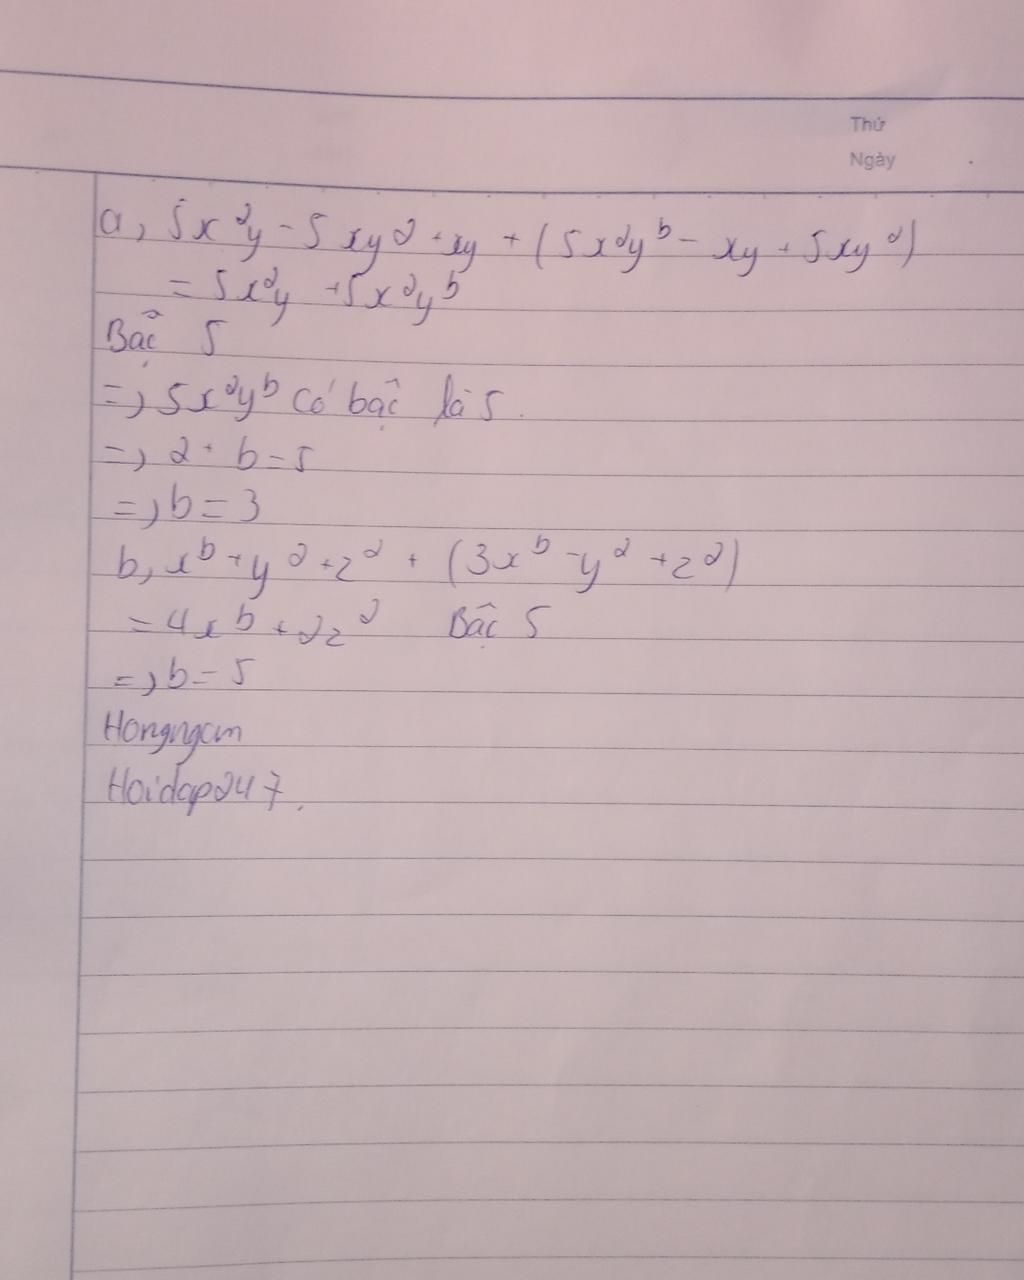 Thứ
Ngày
a, 5x²y - 5xy² + xy + (5x²yᵇ - xy + 5xy²)
= 5x²y + 5x²yᵇ
Bậc 5
=> 5x²yᵇ có bậc là 5.
=> 2 + b = 5
=> b = 3
b, xᵇ + y² + z² + (3xᵇ - y² + z²)
= 4xᵇ + 2z² Bậc 5
=> b = 5
Hongngan
Hoidap247.